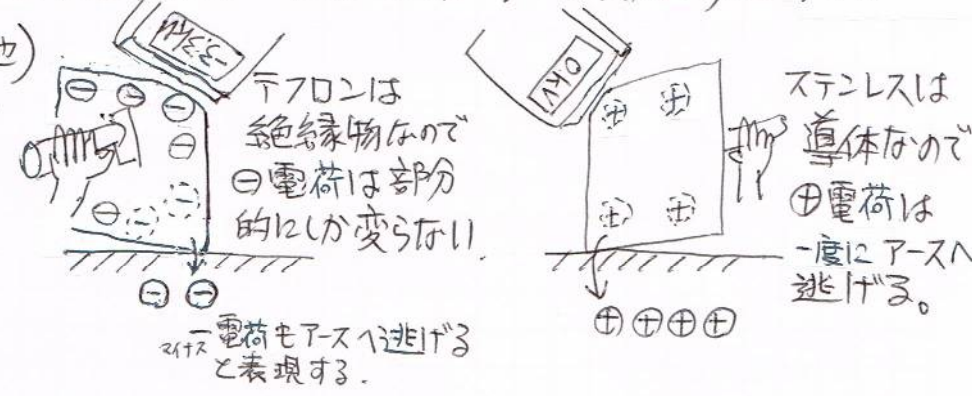 也)
-3.3kV
テフロンは
絶縁物なので
⊖電荷は部分
的にしか変らない.
⊖ ⊖
マイナス
一電荷もアースへ逃げる
と表現する.
0kV
ステンレスは
導体なので
⊕電荷は
一度にアースへ
逃げる。
⊕⊕⊕⊕